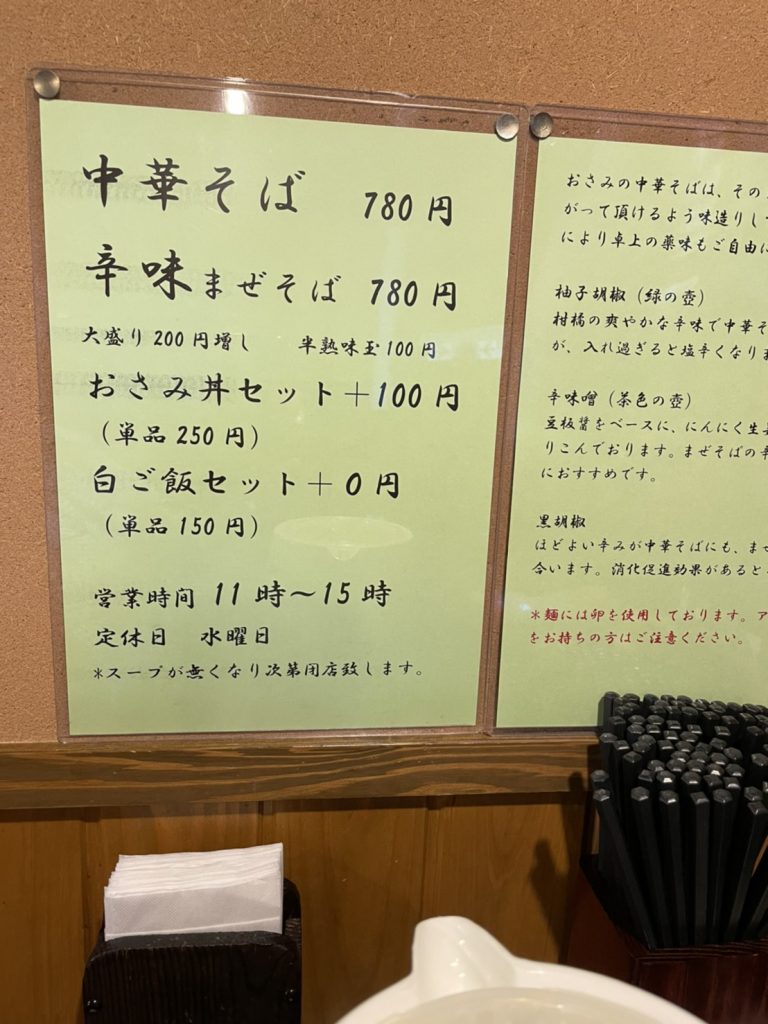 中華そば 780円
辛味まぜそば 780円
大盛り200円増し 半熟味玉100円
おさみ丼セット＋100円
（単品250円）
白ご飯セット＋0円
（単品150円）
営業時間 11時〜15時
定休日 水曜日
＊スープが無くなり次第閉店致します。
おさみの中華そばは、その
がって頂けるよう味造りし
により卓上の薬味もご自由に
柚子胡椒（緑の壺）
柑橘の爽やかな辛味で中華そ
が、入れ過ぎると塩辛くなりま
辛味噌（茶色の壺）
豆板醤をベースに、にんにく生
りこんでおります。まぜそばの辛
におすすめです。
黒胡椒
ほどよい辛みが中華そばにも、ま
合います。消化促進効果があると
＊麺には卵を使用しております。ア
をお持ちの方はご注意ください。